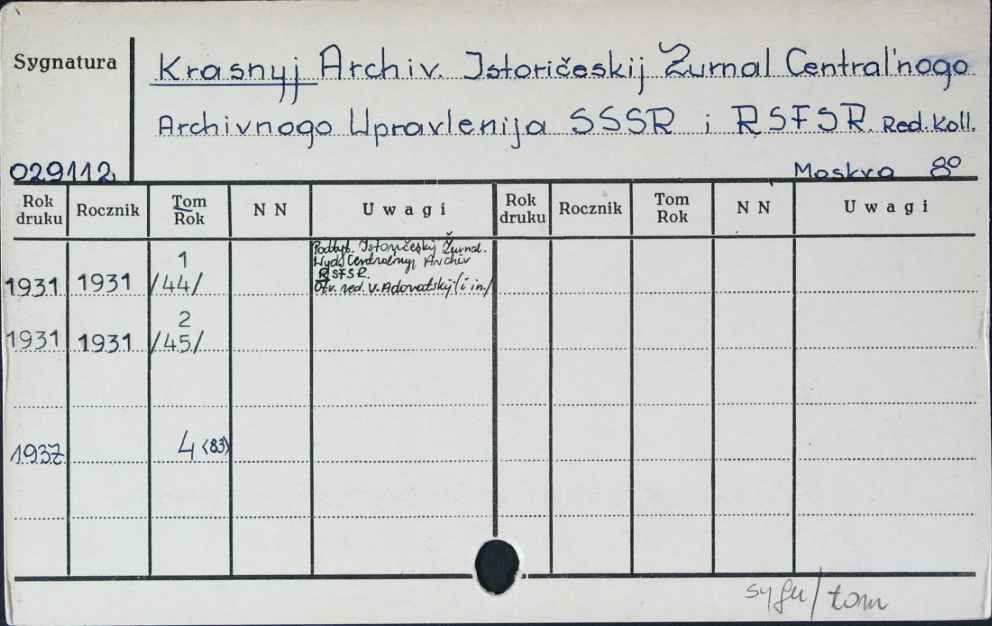 Sygnatura
Krasnyj Archiv. Istoričeskij Žurnal Central'nogo
Archivnogo Upravlenija SSSR i RSFSR. Red. Koll.
029112
Moskva 8º
Rok druku Rocznik Tom Rok NN Uwagi Rok druku Rocznik Tom Rok NN Uwagi
Podtyt. Istoričeskij Žurnal.
Centralnyj Archiv
RSFSR.
Otv. red. V. Adoratskij (i in.)
1
1931 1931 /44/
2
1931 1931 /45/
1937 4 (83)
sygn/tom